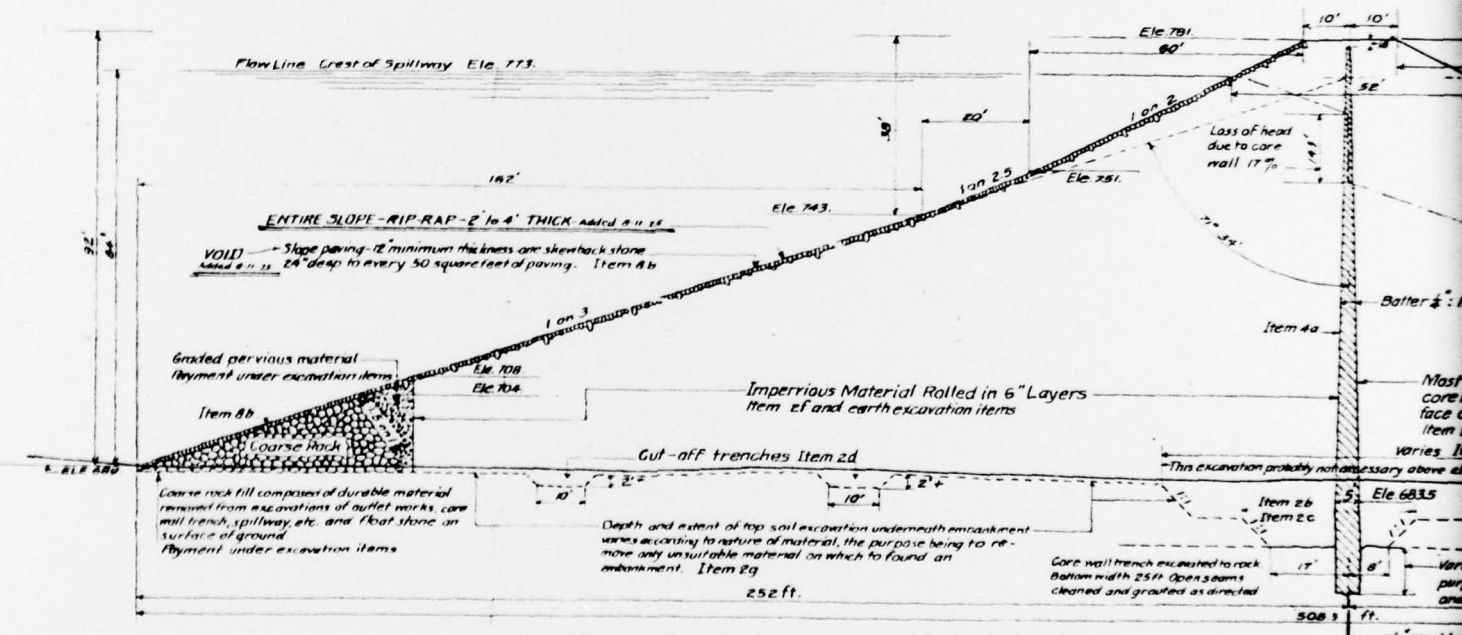 10' 10'
Ele. 781.
60'
Flow Line Crest of Spillway Ele. 773.
52'
1 on 2
38'
20'
Loss of head
due to core
wall 17%
1 on 2.5
Ele. 751.
162'
Ele. 743.
ENTIRE SLOPE-RIP-RAP-2' to 4' THICK- Added 8-11-25
VOID
Added 8-11-25
Slope paving-12" minimum thickness one skewback stone
24" deep to every 50 square feet of paving. Item 8b
92'
Batter
Item 4a
1 on 3
Graded pervious material
Payment under excavation items
Ele. 708
Ele. 704
Item 8b
Coarse Rock
Impervious Material Rolled in 6" Layers
Item 2f and earth excavation items
face
Item
varies
Cut-off trenches Item 2d
This excavation probably not necessary above
10' 2'+
10' 2'+
Item 2b
Item 2c
5
Ele. 683.5
Coarse rock fill composed of durable material
removed from excavations of outlet works, core
wall trench, spillway, etc. and float stone on
surface of ground
Payment under excavation items
Depth and extent of top soil excavation underneath embankment
varies according to nature of material, the purpose being to re-
move only unsuitable material on which to found an
embankment. Item 2g
Core wall trench excavated to rock
Bottom width 25 ft Open seams
cleaned and grouted as directed
17' 8'
252 ft.
508 ft.